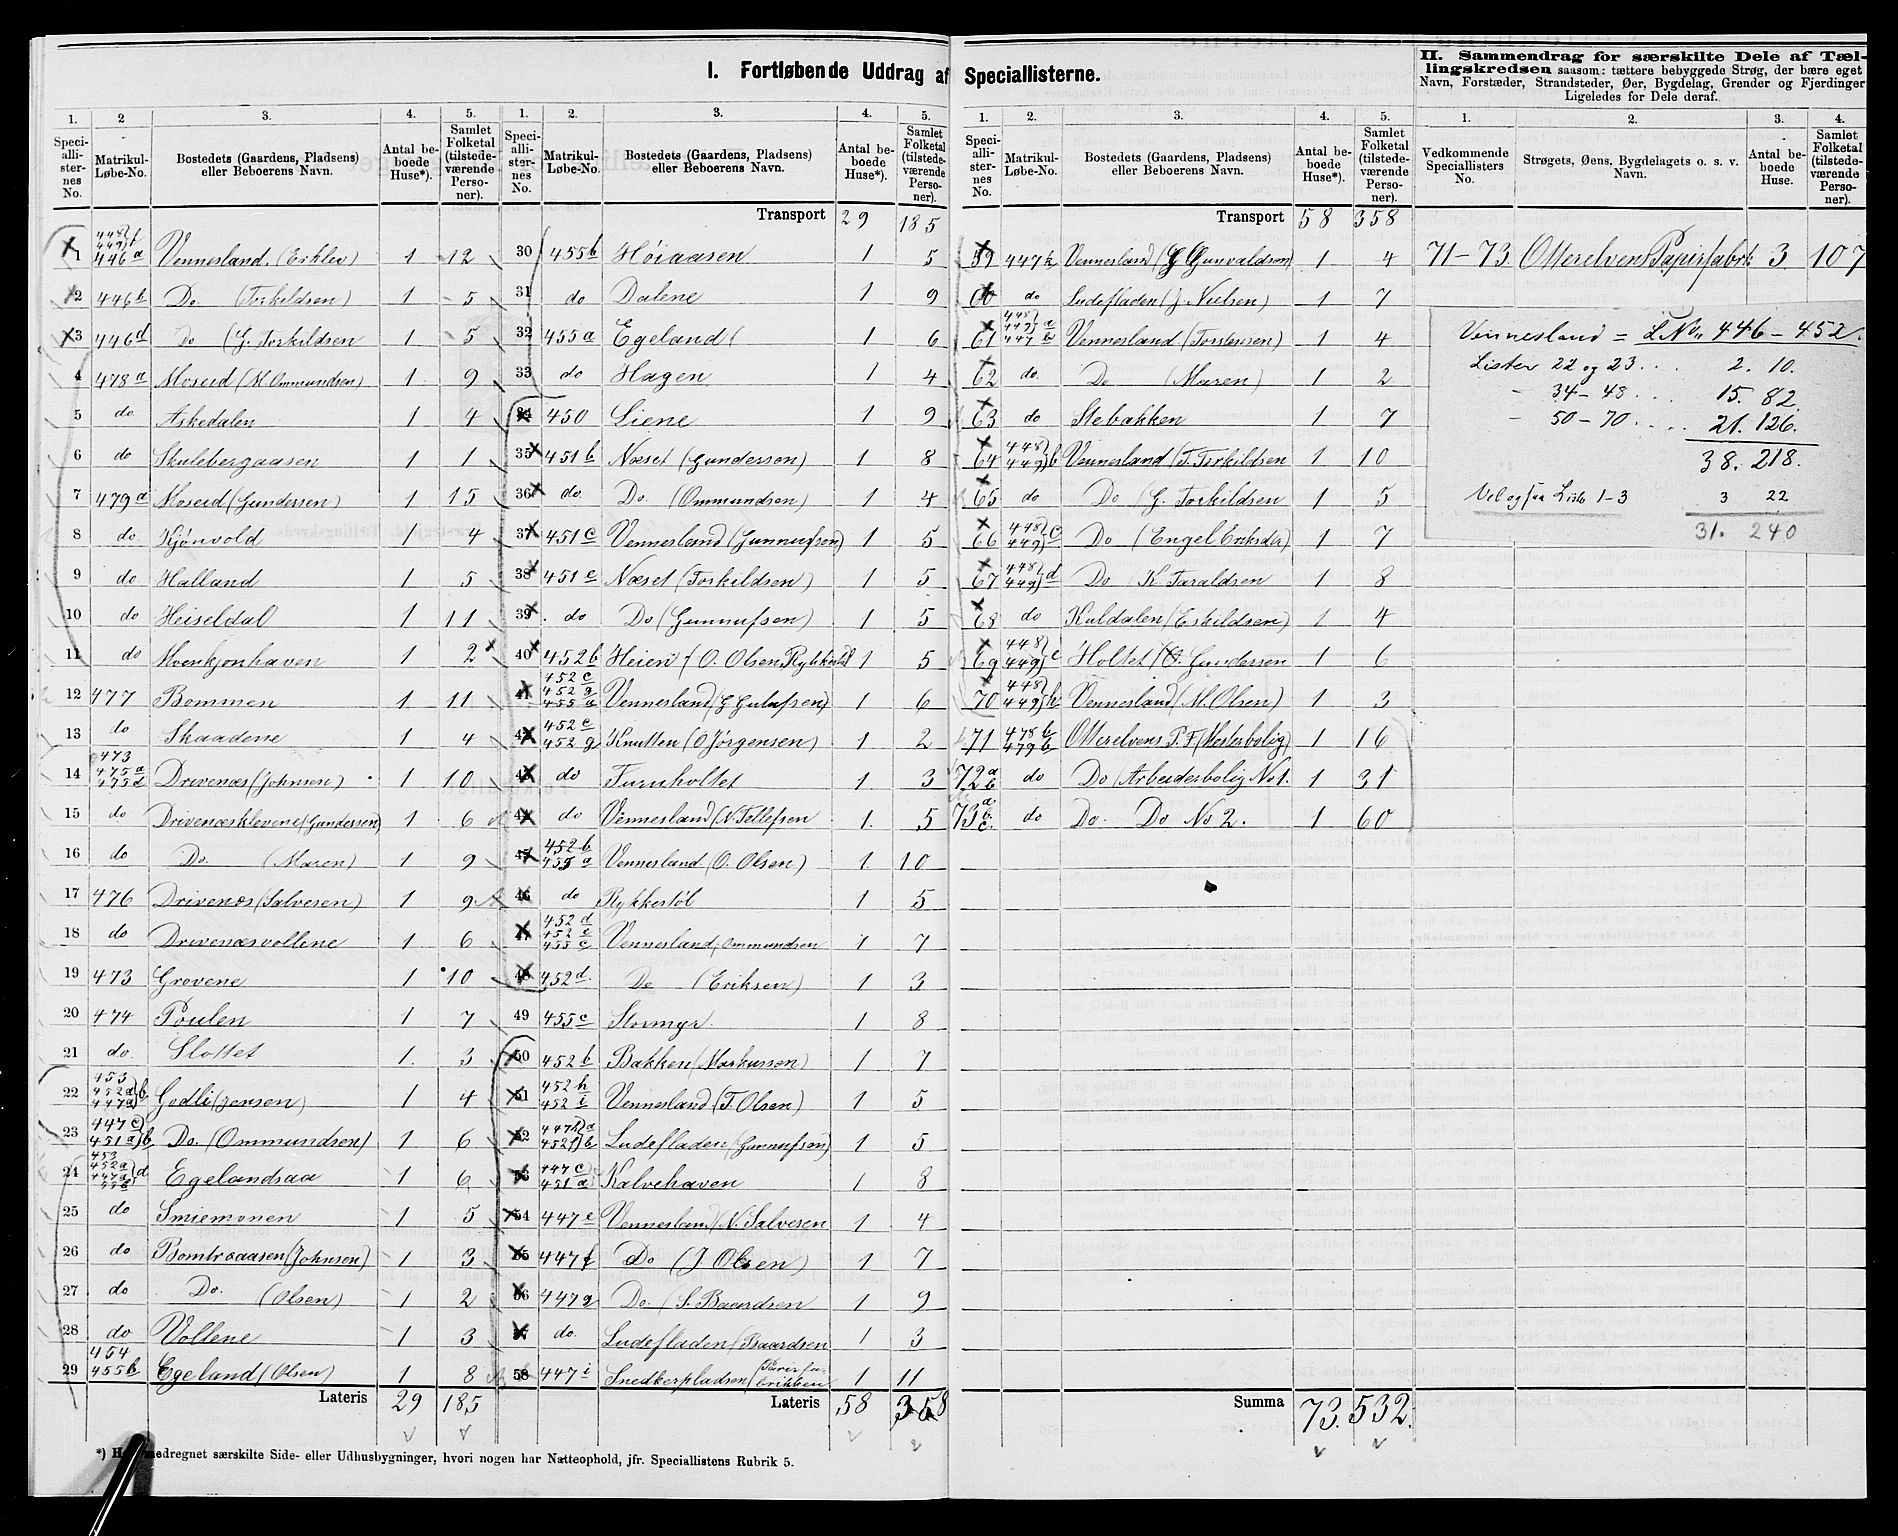 I. Fortløbende Uddrag af Speciallisterne.
1. Speciallisternes No. 2 Matrikul-Løbe-No. 3. Bostedets (Gaardens, Pladsens) eller Beboerens Navn. 4. Antal beboede Huse*). 5. Samlet Folketal (tilstedeværende Personer).
1 448 449 f 446 a Vennesland. (Erklev) 1 12
2 446 b Do (Torkildsen) 1 5
3 446 d Do (G. Torkildsen 1 5
4 478 a Moseid (M Ommundsen) 1 9
5 do Askedalen 1 4
6 do Skulebergaasen 1 1
7 479 a Moseid (Gundersen) 1 15
8 do. Kjønvold 1 4
9 do Halland 1 5
10 do Heiseldal 1 11
11 do 1 2
12 477 Bommen 1 11
13 do Skaadene 1 4
14 473 475 a 475 d Drivenæs (Johnsen) 1 10
15 do Drivenæsklevene (Gundersen) 1 6
16 do Do. (Maren) 1 9
17 476 Drivenæs (Salvesen) 1 9
18 do Drivenæsvollene 1 6
19 473 Grovene 1 10
20 474 Poulen 1 7
21 do. Slottet 1. 3
22 453 452 a 447 a b Godli (Jensen) 1 4
23 447 c 451 a b Do. (Ommundsen) 1 6
24 453 452 a 447 a d Egelandsaa 1 6
25 do Smiemonen 1 5
26 do Bomtraaasen (Johnsen) 1 3
27 do Do. (Olsen) 1 2
28 do Vollene 1 3
29 454 455 b Egeland (Olsen) 1 8
Lateris 29 185
1. Speciallisternes No. 2. Matrikul-Løbe-No. 3. Bostedets (Gaardens, Pladsens) eller Beboerens Navn. 4. Antal beboede Huse*). 5. Samlet Folketal (tilstedeværende Personer).
Transport 29 185
30 455 b Høiaasen 1 5
31 do Dalene 1 9
32 455 a Egeland ( 1 6
33 do Hagen 1 4
34 450 Liene 1 9
35 451 b Næset (Gunderson) 1 8
36 do. Do. (Ommundsen) 1 4
37 451 c Vennesland (Gunnufsen) 1 5
38 451 e Næset (Torkildsen) 1 5
39 do Do (Gunnufsen) 1 5
40 452 b Heien (O. Olsen Rykkestøl 1 5
41 452 c 452 g 455 a Vennesland (G Gulufsen) 1 6
42 452 c 452 g Knutten (O Jørgensen) 1 2
43 do Furuholtet 1 3
44 do Vennesland (N. Tellefsen 1. 5
45 452 b 455 a Vennesland. (O. Olsen) 1. 10
46 do Rykkestøl 1 5
47 452 d 452 e 455 c Vennesland, Ommundsen 1 7
48 452 d. Do (Eriksen) 1 3
49 455 c Stormyr. 1 8
50 452 b Bakken (Markusson) 1 7
51 452 h 452 i Vennesland (T. Olsen) 1 5
52 447 h a 452 f b Ludefladen (Gunnufsen) 1 5
53 447 c 451 a Kalvehaven 1 8
54 447 e Vennesland (N. Salvesen 1 4
55 447 f Do (J. Olsen) 1 7
56 447 g Do. (S. Baardsen 1 9
57 do. Ludefladen (Baardsen 1 3
58 447 i Snedkerpladsen 1 11
Lateris 58 358
*) medregnet særskilte Side- eller Udhusbygninger, hvori nogen har Natteophold, jfr. Speciallistens Rubrik 5.
1. Speciallisternes No. 2. Matrikul-Løbe-No. 3. Bostedets (Gaardens, Pladsens) eller Beboerens Navn. 4. Antal beboede Huse*). 5. Samlet Folketal (tilstedeværende Personer).
Transport 58 358
59 447 k Vennesland (G Gunvaldsen) 1 4
60 do Ludefladen (J Nielsen) 1 7
61 448 449 a 447 b Vennesland (Torstensen) 1 4
62 do. Do (Maren) 1 2
63 do Stebakken 1 7
64 448 449 b Vennesland (T. Torkildsen 1 10
65 do Do (G. Torkildsen 1 5
66 448 449 c Do (Engel Eriksdtr) 1 7
67 448 449 d Do (K Taraldsen 1 8
68 do Kuldalen (Eskildsen) 1 4
69 448 449 e Holtet (O. Gundersen 1 6
70 448 449 h Vennesland (M. Olsen) 1 3
71 478 b 479 b Otterelvens P. F (Mesterbolig) 1 16
72 a b do Do (Arbeiderbolig No 1. 1 31
73 a b c. do Do. Do No 2. 1 60
Summa 73. 532.
II. Sammendrag for særskilte Dele af Tællingskredsen saasom: tættere bebyggede Strøg, der bære eget Navn, Forstæder, Strandsteder, Øer, Bygdelag, Grender og Fjerdinger Ligeledes for Dele deraf.
1. Vedkommende Speciallisters No. 2. Strøgets, Øens, Bygdelagets o. s. v. Navn. 3. Antal beboede Huse. 4. Samlet Folketal (tilstedeværende Personer).
71-73 Otterelvens Papirfabrik 3 107
Vennesland = LNo 446-452.
Lister 22 og 23 . . . 2. 10.
- 34-48 . . . 15. 82.
- 50-70 . . . . 21. 126.
38. 218.
Vel ogsaa Liste 1-3 3 22
31. 240